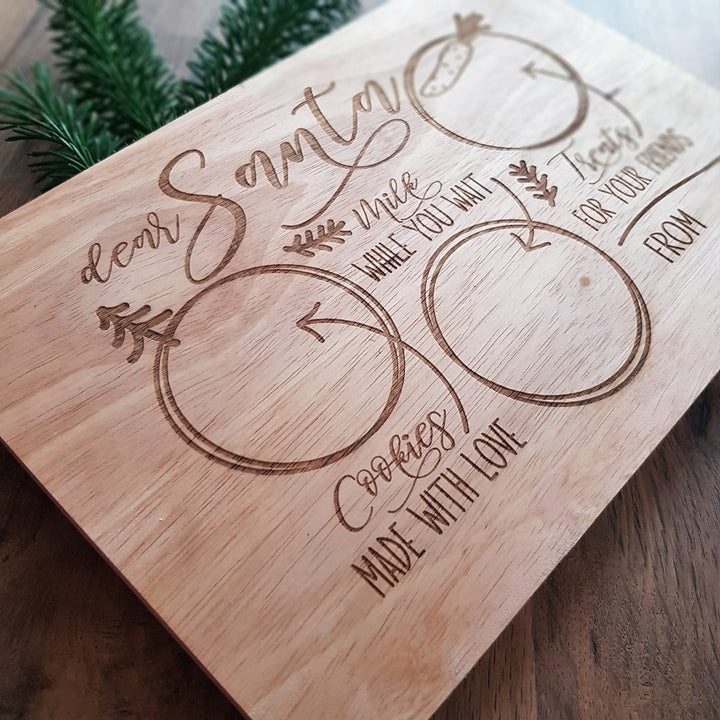 dear Santa
Milk
WHILE YOU WAIT
Treats
FOR YOUR FRIENDS
FROM
Cookies
MADE WITH LOVE